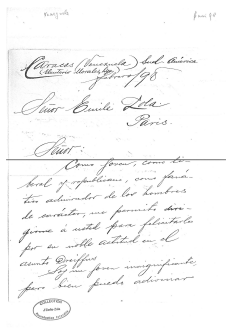 Venezuela
Caracas (Venezuela) Sud-América
Febrero/98
Señor Emile Zola
Paris.
Señor:
Como joven, como li-
beral y republicano, como faná-
tico admirador de los hombres
de carácter, me permito diri-
girme á usted para felicitarle
por su noble actitud en el
asunto Dreiffus.
Soy un joven insignificante,
pero bien puedo
COLLECTION